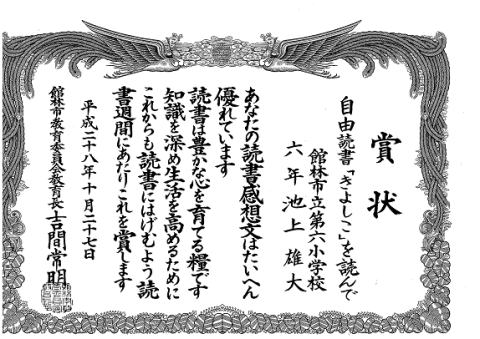 賞状
自由読書「きよしこ」を読んで
館林市立第六小学校
六年 池上雄大
あなたの読書感想文はたいへん
優れています
読書は豊かな心を育てる糧です
知識を深め生活を高めるために
これからも読書にはげむよう読
書週間にあたりこれを賞します
平成二十八年十月二十七日
館林市教育委員会教育長 吉間常明